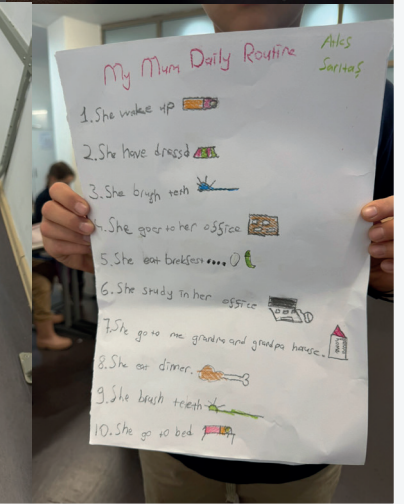 My Mum Daily Routine
Saritaş
1. She wake up
2. She have dressd
3. She brush teth
4. She goes to her office
5. She eat brekfest....
6. She study in her office
7. She go to me grandma and grandpa house.
8. She eat dinner.
9. She brush teeteth
10. She go to bed